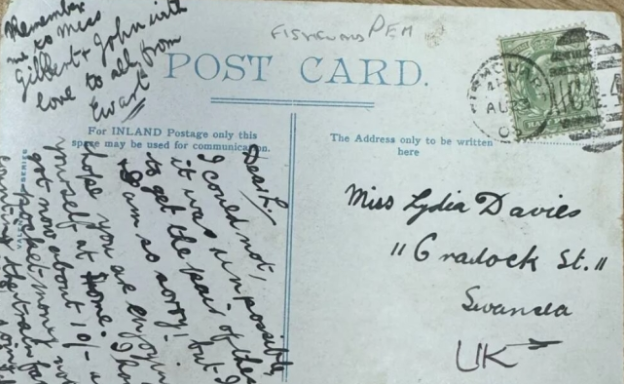 Remember
me to Miss
Gilbert & John with
love to all from
Ewart
FISHGUARD PEM
POST CARD.
For INLAND Postage only this
space may be used for communication.
The Address only to be written
here
AUARD
AU 3
Dear L.
I could not,
it was impossible
to get the pair of these
I am so sorry! but I
hope you are enjoyin
yourself at home. I h
got now about 10/- a
pocket money no
counting the train fa
Miss Lydia Davies
"Cradock St."
Swansea
UK